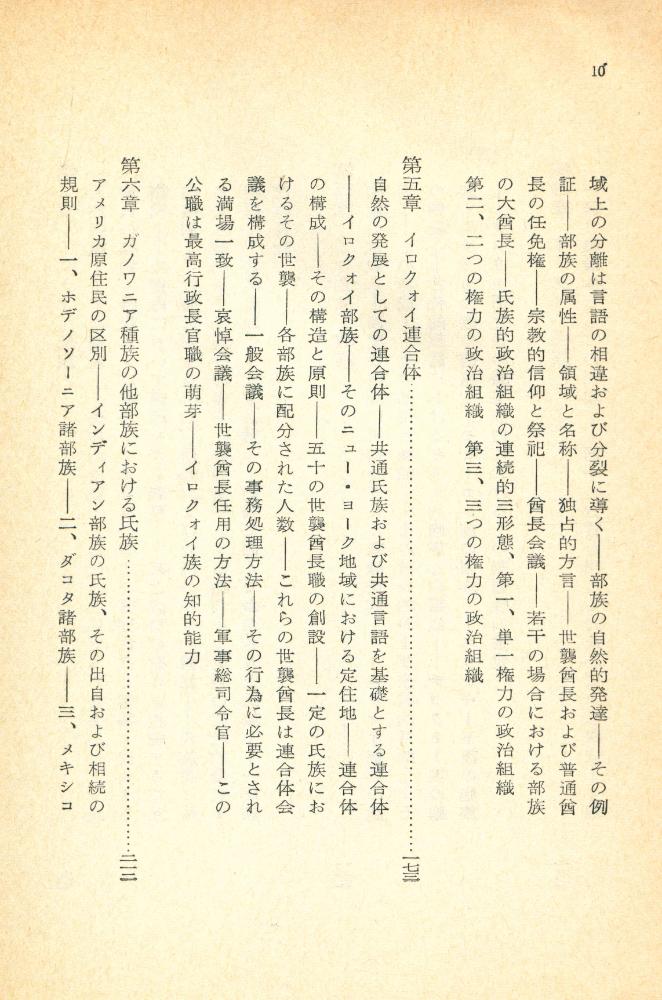 10
域上の分離は言語の相違および分裂に導く――部族の自然的発達――その例
証――部族の属性――領域と名称――独占的方言――世襲酋長および普通酋
長の任免権――宗教的信仰と祭祀――酋長会議――若干の場合における部族
の大酋長――氏族的政治組織の連続的三形態、第一、単一権力の政治組織
第二、二つの権力の政治組織　第三、三つの権力の政治組織
第五章　イロクォイ連合体…………………………………………一七三
自然の発展としての連合体――共通氏族および共通言語を基礎とする連合体
――イロクォイ部族――そのニュー・ヨーク地域における定住地――連合体
の構成――その構造と原則――五十の世襲酋長職の創設――一定の氏族にお
けるその世襲――各部族に配分された人数――これらの世襲酋長は連合体会
議を構成する――一般会議――その事務処理方法――その行為に必要とされ
る満場一致――哀悼会議――世襲酋長任用の方法――軍事総司令官――この
公職は最高行政長官職の萌芽――イロクォイ族の知的能力
第六章　ガノワニア種族の他部族における氏族…………………………二一二
アメリカ原住民の区別――インディアン部族の氏族、その出自および相続の
規則――一、ホデノソーニア諸部族――二、ダコタ諸部族――三、メキシコ